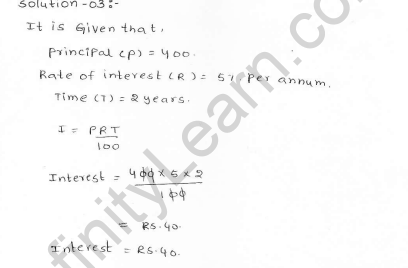 Solution-03:-
It is Given that,
Principal (P) = 400.
Rate of interest (R) = 5% per annum.
Time (T) = 2 years.
I = PRT
100
Interest = 400 × 5 × 2
100
= RS.40.
Interest = RS.40.
finityLearn.com